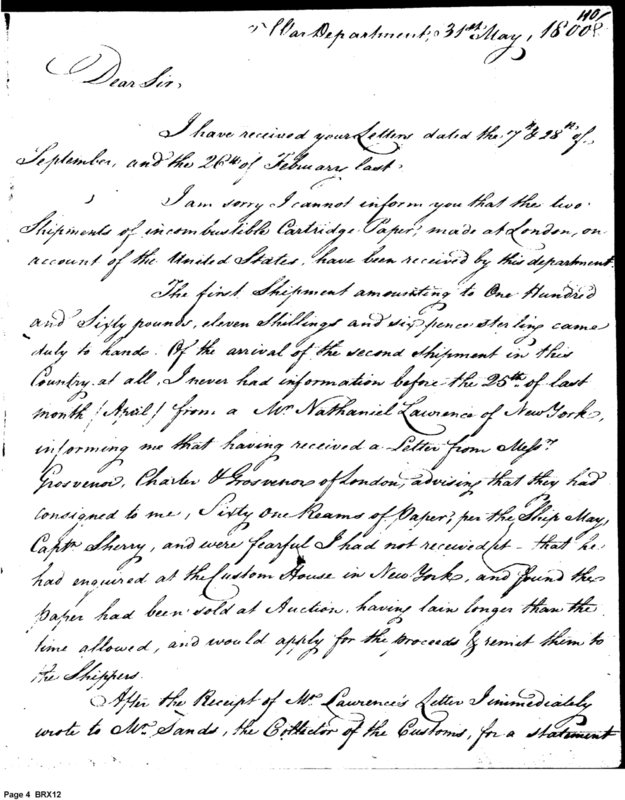 110
War Department, 31st May, 1800.
Dear Sir,
I have received your Letters dated the 7th & 28th of
September, and the 26th of February last.
I am sorry I cannot inform you that the two
Shipments of incombustible Cartridge Paper, made at London, on
account of the United States, have been received by this department.
The first Shipment amounting to One Hundred
and Sixty pounds, eleven Shillings and six pence sterling came
duly to hand. Of the arrival of the second shipment in this
Country at all, I never had information before the 25th of last
month (April) from a Mr Nathaniel Lawrence of New York,
informing me that having received a Letter from Messrs
Grosvenor, Chater & Grosvenor of London, advising that they had
consigned to me, Sixty One Reams of Paper, per the Ship May,
Captn Sherry, and were fearful I had not received it - that he
had enquired at the Custom House in New York, and found the
Paper had been sold at Auction, having lain longer than the
time allowed, and would apply for the proceeds & remit them to
the Shippers.
After the Receipt of Mr Lawrence's Letter I immediately
wrote to Mr Sands, the Collector of the Customs, for a statement
Page 4 BRX12